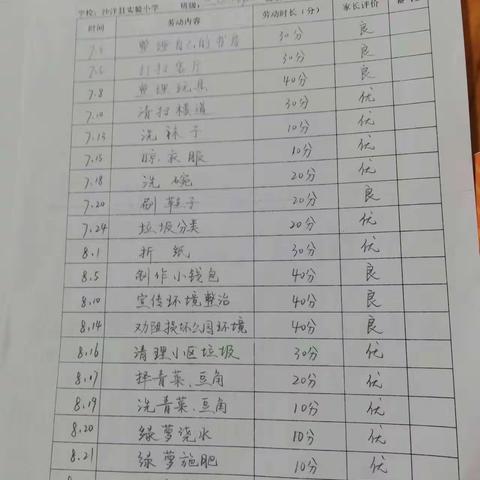 学校：沙洋县实验小学 班级：
时间 劳动内容 劳动时长（分） 家长评价
7.5 整理自己的书房 30分 良
打扫客厅 30分 良
7.8 整理玩具 40分 良
7.10 清扫楼道 30分 优
7.13 洗袜子 10分 优
7.15 晾衣服 10分 优
7.18 洗碗 20分 优
7.20 刷鞋子 20分 良
7.24 垃圾分类 20分 优
8.1 折纸 30分 优
8.5 制作小钱包 40分 良
8.10 宣传环境整治 40分 良
8.14 劝阻损坏公园环境 40分 良
8.16 清理小区垃圾 30分 优
8.17 择青菜、豆角 20分 优
8.19 洗青菜、豆角 10分 优
8.20 绿萝浇水 10分 优
8.21 绿萝施肥 10分 优